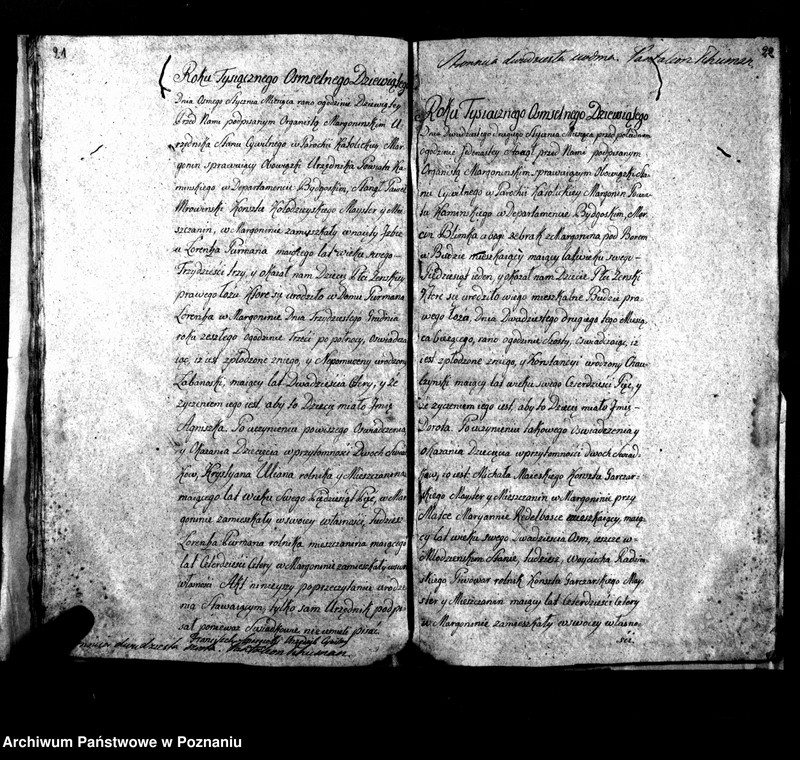 21
Roku Tysiącznego Osmsetnego Dziewiątego
Dnia Osmego Stycznia Miesiąca rano ogodzinie Dziewiątey
Przed Nami podpisanym Organistą Margoninskim U-
rzędnika Stanu Cywilnego w Parochii Katolickiey Mar-
gonin sprawuiący Obowiązki Urzędnika Powiatu Ka-
minskiego w Departamencie Bydgoskim, Stanął Paweł
Mrowinski Konsztu Kołodzieyskiego Mayster y Mie-
szczanin, w Margoninie zamieszkały w naięty Izbie
u Lorenka Furmana maiącego lat wieku swego
Trzydzieści trzy, y okazał nam Dziecię Płci Zenskiey
prawego łoża które się urodziło w domu Furmana
Lorenka w Margoninie Dnia Trzydziestego Grudnia
roku zeszłego ogodzinie Trzeci po północy, oswiadcza
iąc, iż iest spłodzone z niego, y Nepomuceny urodzony
Labanoski, maiący lat Dwadzieścia cztery, y że
życzeniem iego iest aby to Dziecię miało Imię
Agniszka. Po uczynieniu powyższego Oswiadczenia
y Okazania Dziecięcia w przytomności Dwoch Swiad
kow, Krystyana Uliana rolnika y Mieszczanina
maiącego lat wieku Swego Pięćdziesiąt Pięć, w Mar
goninie zamieszkały w swoiey własności, tudziesz
Lorenka Furmana rolnika mieszczanina maiącego
lat Czterdzieści Cztery w Margoninie zamieszkały w swoi
własności Akt ninieyszy po przeczytaniu urodze-
nia Stawaiącym, tylko sam Urzędnik podpi-
sał ponieważ Swiadkowie nie umieli pisać
dwudziesta Pantalion Thuman
22
dwudziesta siodma. Pantalion Thuman
Roku Tysiącznego Osmsetnego Dziewiątego
Dnia Dwudziestego drugiego Stycznia Miesiąca przed południem
ogodzinie Jedenastey Stanął przed Nami podpisanym
Organistą Margoninskim sprawuiącym Obowiązki Sta-
nu Cywilnego w Parochii Katolickiey Margonin Powia-
tu Kaminskiego w Departamencie Bydgoskim, Mar-
cin żebrak z Margonina pod Borem
w Budzie mieszkaiący maiący lat wieku swego
Pięćdziesiąt ieden, y okazał nam Dziecie Płci Zenski
które się urodziło w iego mieszkalne Budzie pra-
wego łoża, Dnia Dwudziestego drugiego tego Miesią
ca bieżącego, rano ogodzinie szosty, Oswiadczaiąc, iż
iest spłodzone z niego, y Konstancyi urodzony
maiący lat wieku swego Czterdzieści Pięć, y
że życzeniem iego iest aby to Dziecię miało Imię-
Dorota. Po uczynieniu takowego Oswiadczenia y
okazania Dziecięcia w przytomności dwoch Swiad-
kow, to iest Michała Maieskiego Konsztu Garczar-
skiego Mayster y Mieszczanin w Margoninie przy
Matce Maryannie mieszkaiący, maią
cy lat wieku swego Dwadzieścia Osm, ieszcze w
Młodzienskim Stanie, tudziesz, Woyciecha
rolnik Konsztu Garczarskiego May-
ster y Mieszczanin maiący lat Czterdzieści Cztery
w Margoninie zamieszkały w swoiey własno-
ści
Archiwum Państwowe w Poznaniu